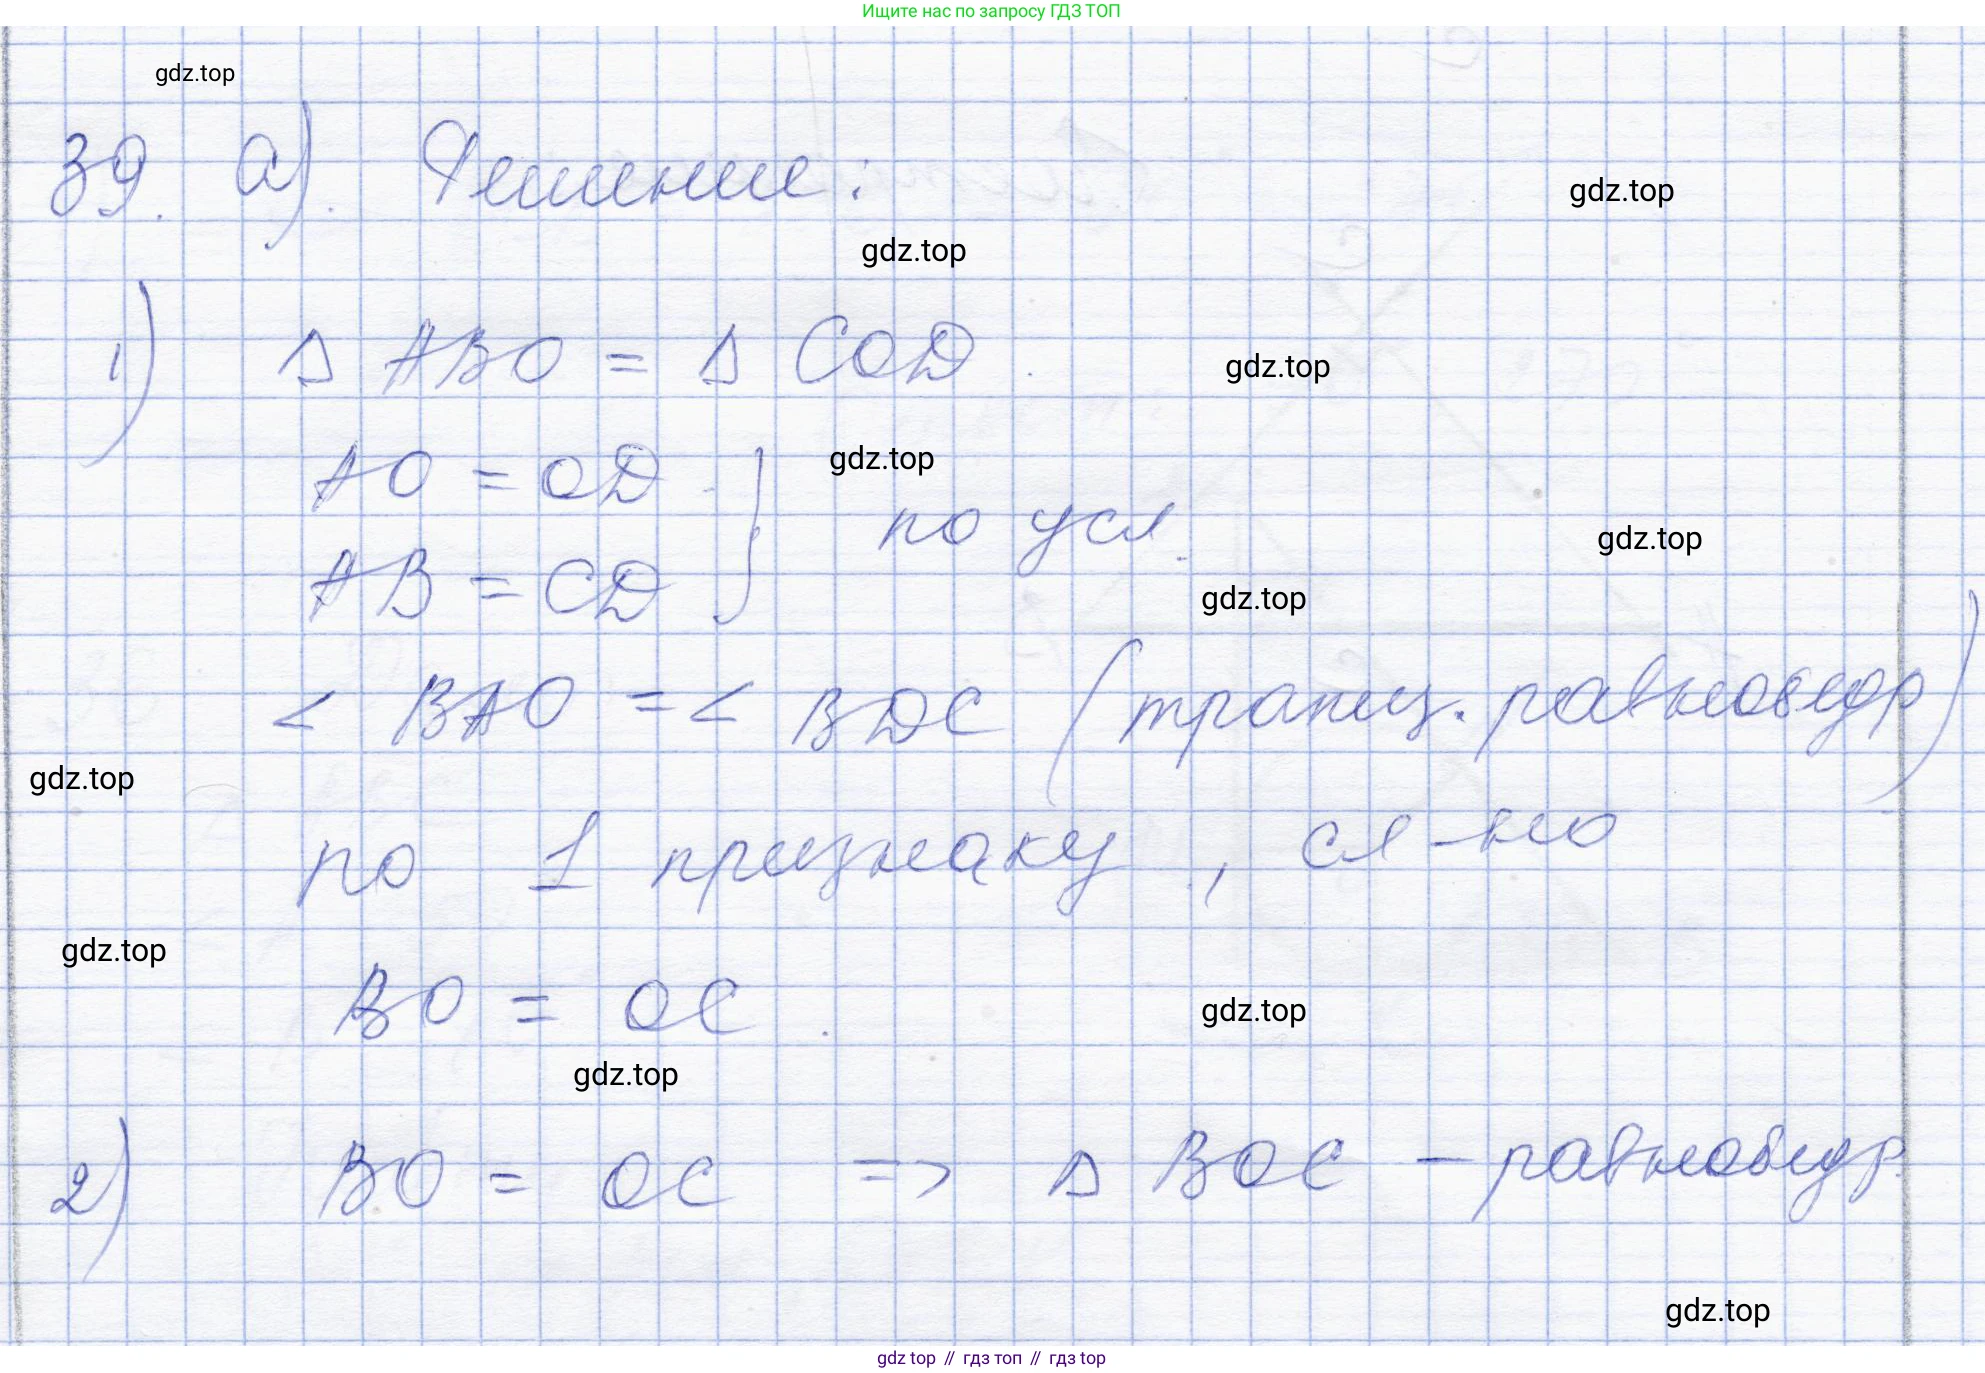 Ищите нас по запросу ГДЗ ТОП
gdz.top
39. а). Решение:
gdz.top
gdz.top
1) Δ ABO = Δ COD.
gdz.top
AO = OD
gdz.top
} по усл.
gdz.top
AB = CD
gdz.top
< BAO = < BDC (трапец. равнобедр)
gdz.top
по 1 признаку, сл-но
gdz.top
BO = OC.
gdz.top
gdz.top
2) BO = OC => Δ BOC - равнобедр.
gdz.top
gdz top // гдз топ // гдз top